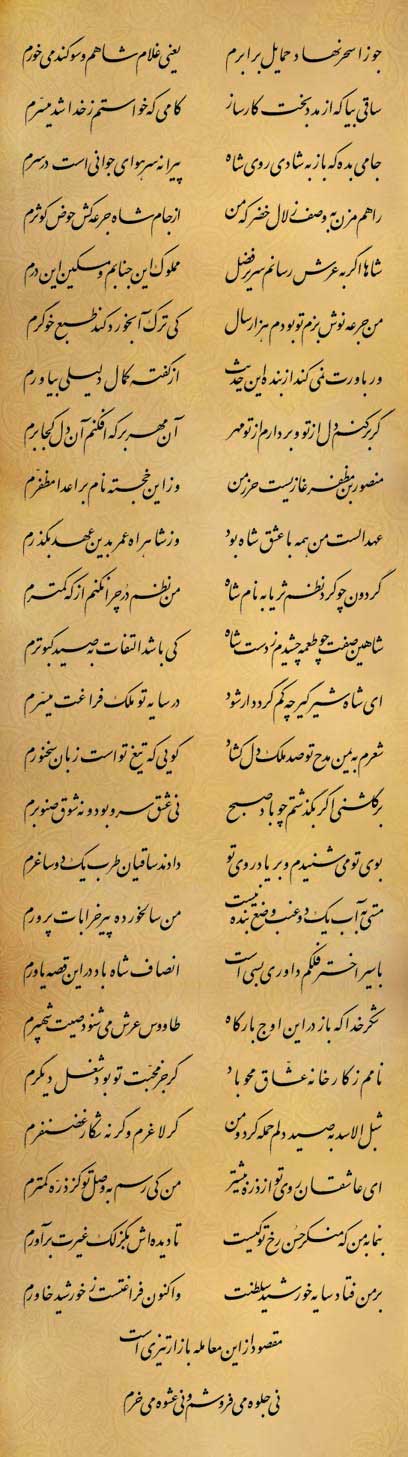 جوزا سحر نهاد حمایل برابرم یعنی غلام شاهم و سوگند می‌خورم
ساقی بیا که از مدد بخت کارساز کامی که خواستم ز خدا شد میسرم
جامی بده که باز به شادی روی شاه پیرانه سر هوای جوانی است در سرم
راهم مزن به وصف زلال خضر که من از جام شاه جرعه کش حوض کوثرم
شاها اگر به عرش رسانم سریر فضل مملوک این جنابم و مسکین این درم
من جرعه نوش بزم تو بودم هزار سال کی ترک آبخورد کند طبع خوگرم
ور باورت نمی کند از بنده این حدیث از گفته کمال دلیلی بیاورم
گر برکنم دل از تو و بردارم از تو مهر آن مهر بر که افکنم آن دل کجا برم
منصور بن مظفر غازیست حرز من و از این خجسته نام بر اعدا مظفرم
عهد الست من همه با عشق شاه بود و از شاهراه عمر بدین عهد بگذرم
گردون چو کرد نظم ثریا به نام شاه من نظم در چرا نکنم از که کمترم
شاهین صفت چو طعمه چشیدم ز دست شاه کی باشد التفات به صید کبوترم
ای شاه شیرگیر چه کم گردد ار شود در سایه تو ملک فراغت میسرم
شعرم به یمن مدح تو صد ملک دل گشاد گویی که تیغ توست زبان سخنورم
بر گلشنی اگر بگذشتم چو باد صبح نی عشق سرو بود و نه شوق صنوبرم
بوی تو می‌شنیدم و بر یاد روی تو دادند ساقیان طرب یک دو ساغرم
مستی به آب یک دو عنب وضع بنده نیست من سالخورده پیر خرابات پرورم
با سیر اختر فلکم داوری بسی است انصاف شاه باد در این قصه یاورم
شکر خدا که باز در این اوج بارگاه طاووس عرش می‌شنود صیت شهپرم
نامم ز کارخانه عشاق محو باد گر جز محبت تو بود شغل دیگرم
شبل الاسد به صید دلم حمله کرد و من گر لاغرم وگرنه شکار غضنفرم
ای عاشقان روی تو از ذره بیشتر من کی رسم به وصل تو کز ذره کمترم
بنما به من که منکر حسن رخ تو کیست تا دیده‌اش به گزلک غیرت برآورم
بر من فتاد سایه خورشید سلطنت و اکنون فراغت است ز خورشید خاورم
مقصود از این معامله بازار تیزی است
نی جلوه می‌فروشم و نی عشوه می‌خرم